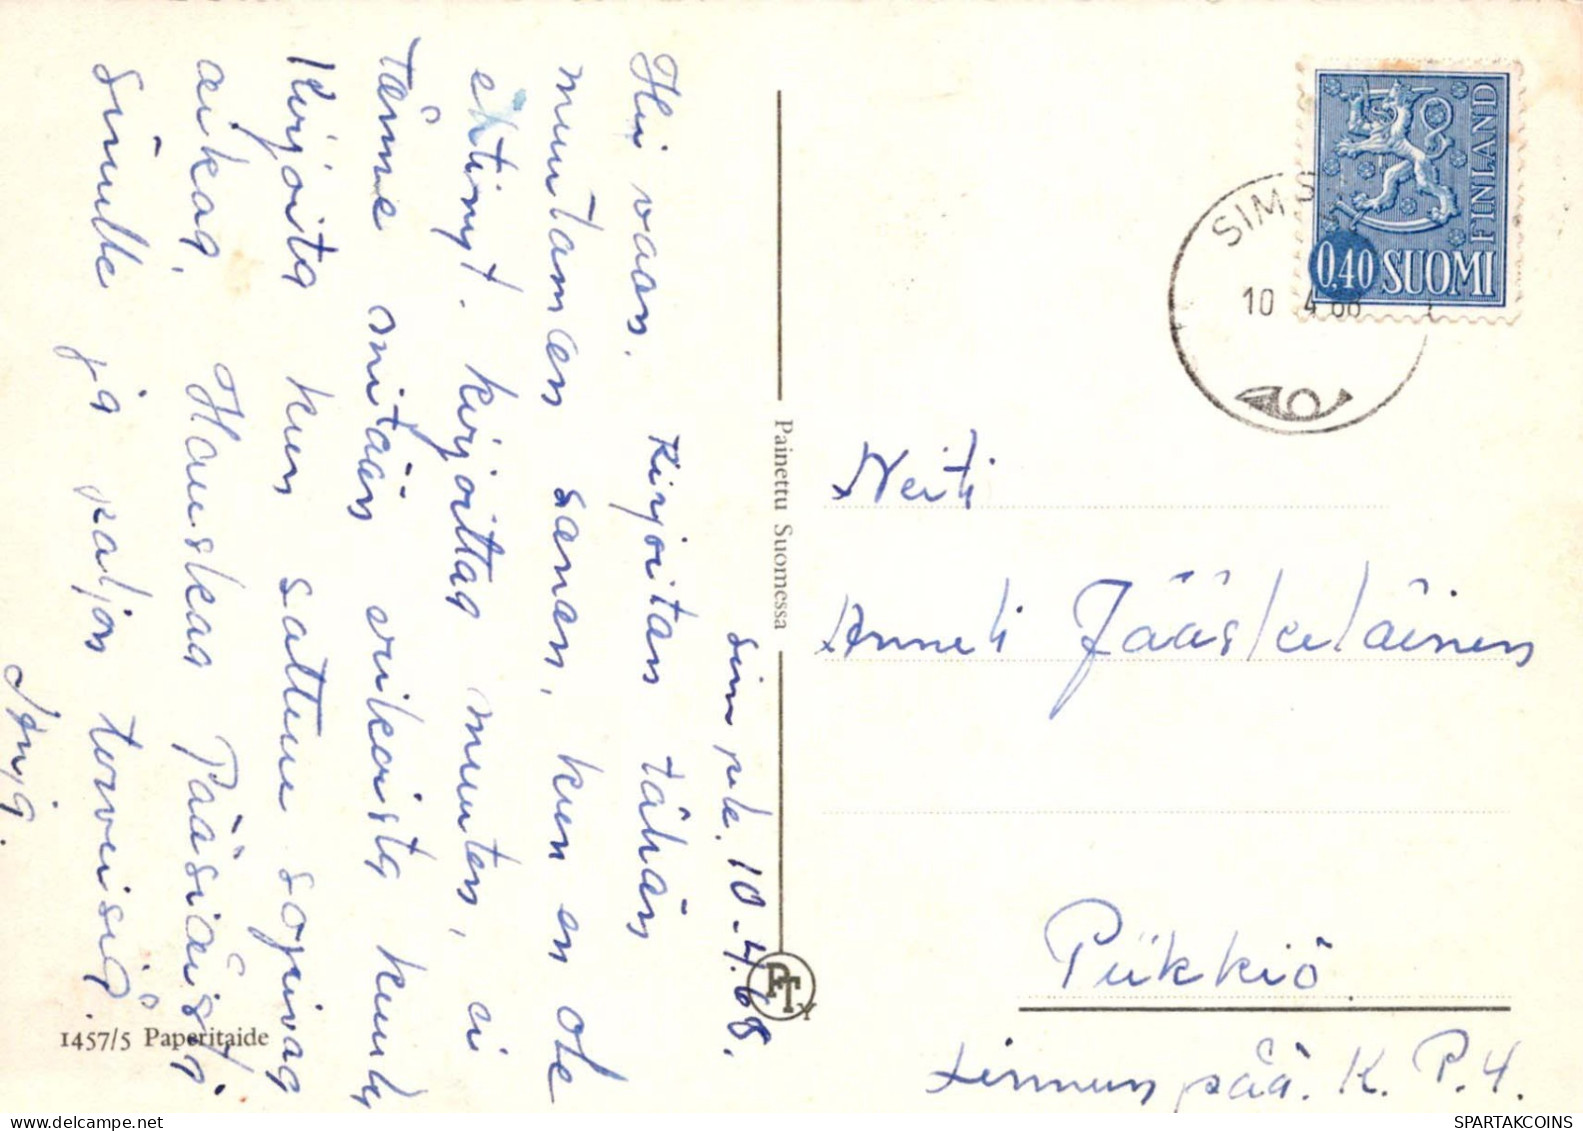 Simpele. 10-4.68.
Hei vaan. Kirjoitan tähän
muutamen sanan, kun en ole
ehtinyt. kirjoittaa muuten, ei
tänne mitään erikoista kuulu
Kirjoita kun sattuu sopivaa
aikaa. Hauskaa Pääsiäistä
sinulle ja paljon terveisiä.
1457/5 Paperitaide
Painettu Suomessa
PTY
FINLAND
0,40 SUOMI
SIMS
10 4 68
Neiti
Anneli Jääskeläinen
Piikkiö
Linnunpää. K. P.4.
SPARTAKCOINS
WWW.DELCAMPE.NET